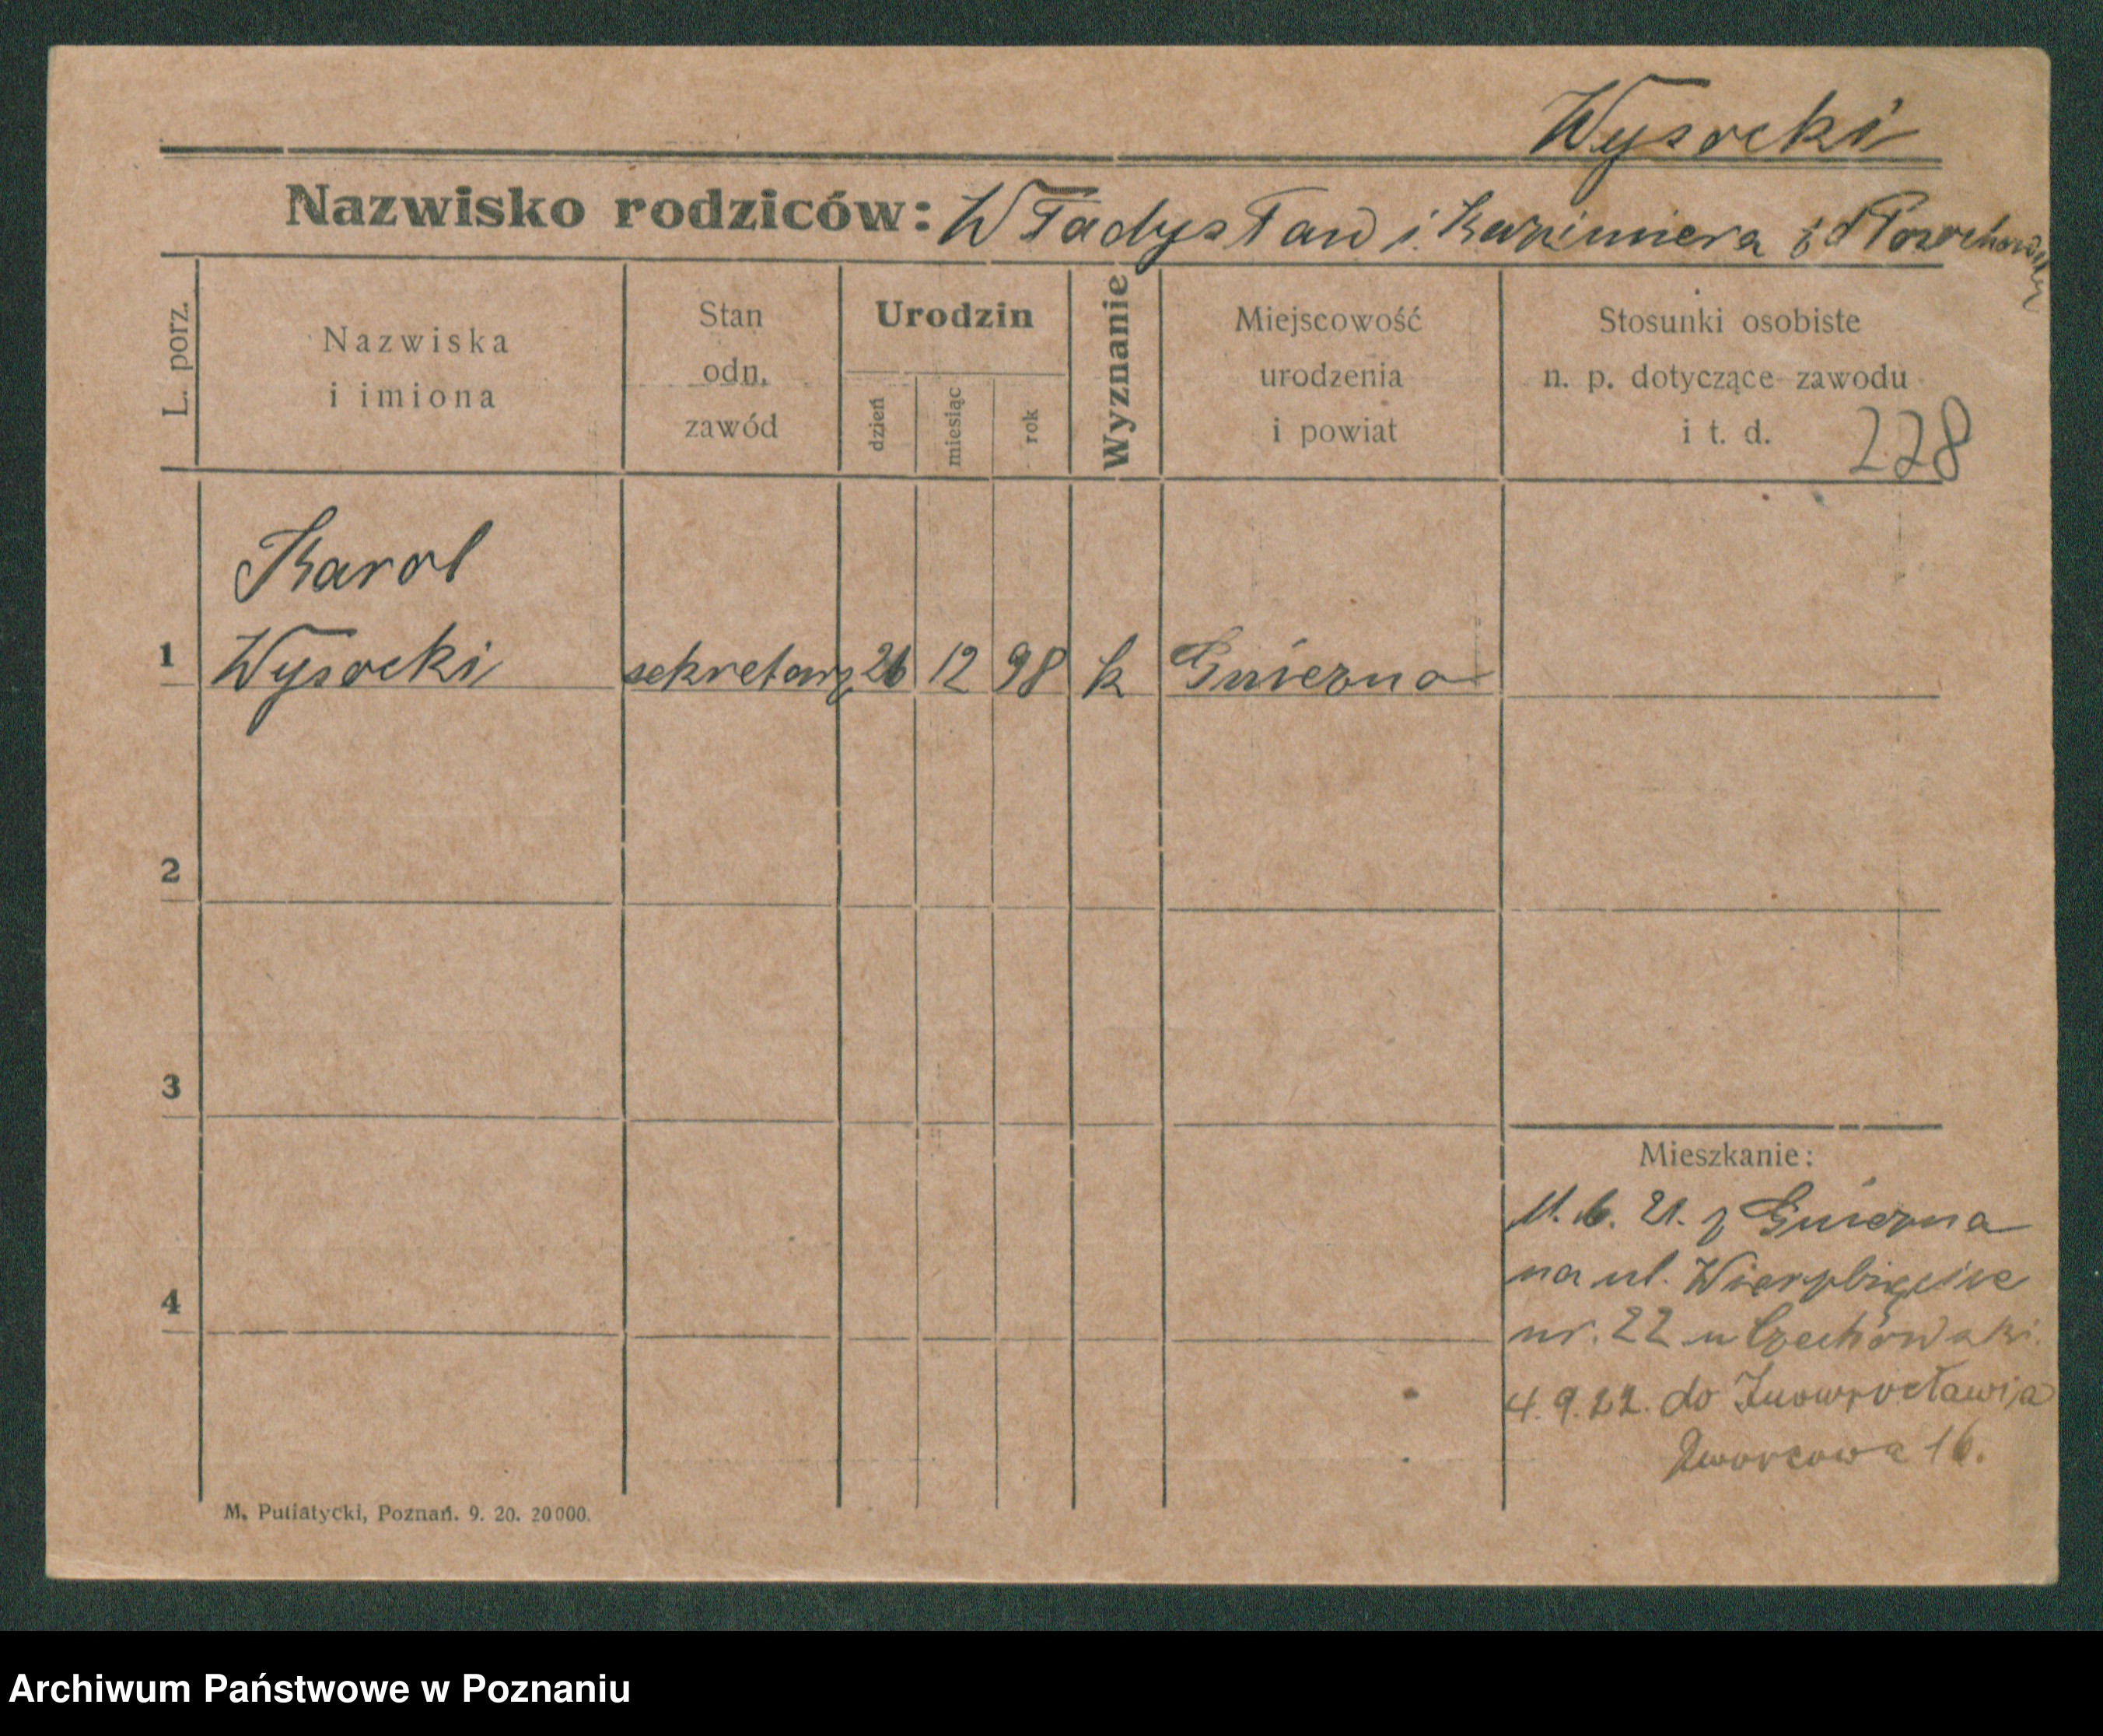 Wysocki
Nazwisko rodziców: Władysław i Kazimiera z d
L. porz.
Nazwiska
i imiona
Stan
odn.
zawód
Urodzin
dzień
miesiąc
rok
Wyznanie
Miejscowość
urodzenia
i powiat
Stosunki osobiste
n. p. dotyczące zawodu
i t. d.
228
Karol
1 Wysocki sekretarz 26 12 98 k Gniezno
2
3
4
Mieszkanie:
21. z Gniezna
na ul. Wierzbięcice
nr. 22 u Czechowski.
4.9.22. do Inowrocławia
Dworcowa 16.
M. Putiatycki, Poznań. 9. 20. 20000.
Archiwum Państwowe w Poznaniu